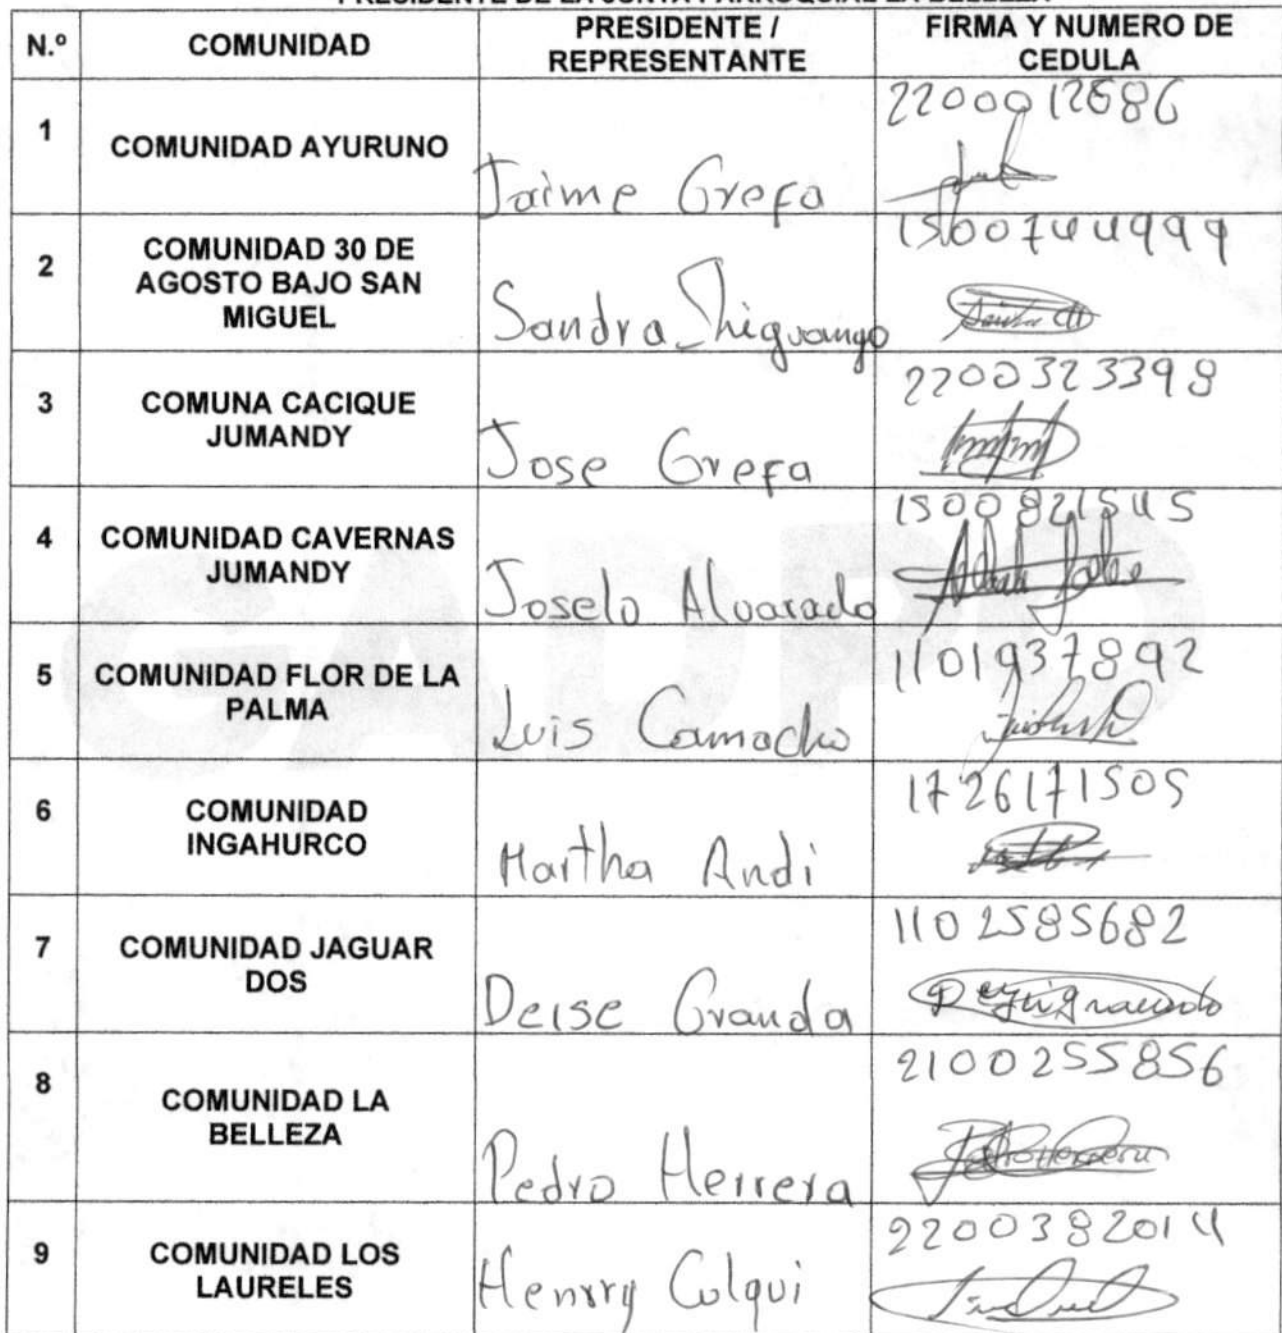 PRESIDENTE DE LA JUNTA PARROQUIAL LA BELLEZA
N.º COMUNIDAD PRESIDENTE / REPRESENTANTE FIRMA Y NUMERO DE CEDULA
1 COMUNIDAD AYURUNO Jaime Grefa 2200012686
2 COMUNIDAD 30 DE AGOSTO BAJO SAN MIGUEL Sandra Shiguango 1500744999
3 COMUNA CACIQUE JUMANDY Jose Grefa 2200323398
4 COMUNIDAD CAVERNAS JUMANDY Joselo Alvarado 1500821545
5 COMUNIDAD FLOR DE LA PALMA Luis Camacho 1101937892
6 COMUNIDAD INGAHURCO Martha Andi 1726171505
7 COMUNIDAD JAGUAR DOS Deise Granda 1102585682
8 COMUNIDAD LA BELLEZA Pedro Herrera 2100255856
9 COMUNIDAD LOS LAURELES Henrry Colqui 2200382014
GADPO